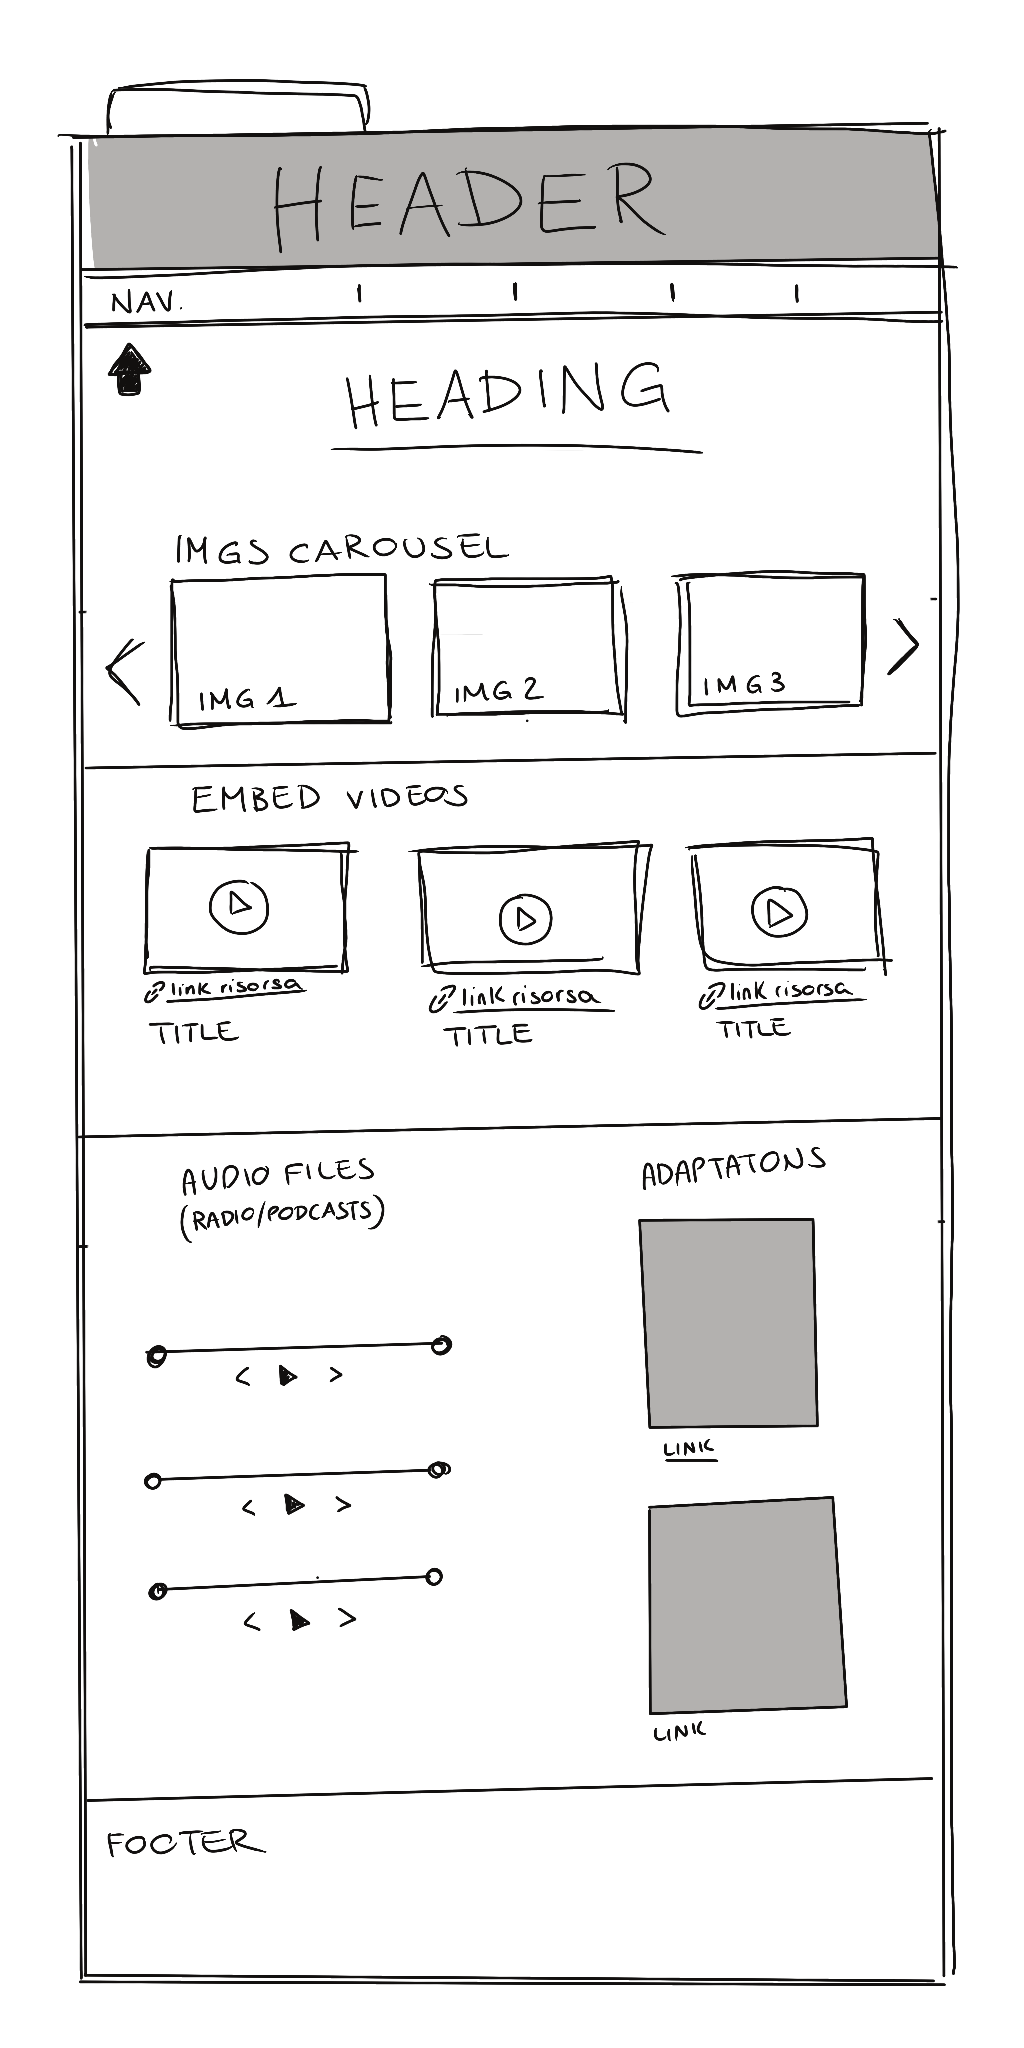 HEADER
NAV.
HEADING
IMGS CAROUSEL
IMG 1
IMG 2
IMG 3
EMBED VIDEOS
link risorsa
TITLE
link risorsa
TITLE
link risorsa
TITLE
AUDIO FILES
(RADIO/PODCASTS)
ADAPTATONS
LINK
LINK
FOOTER